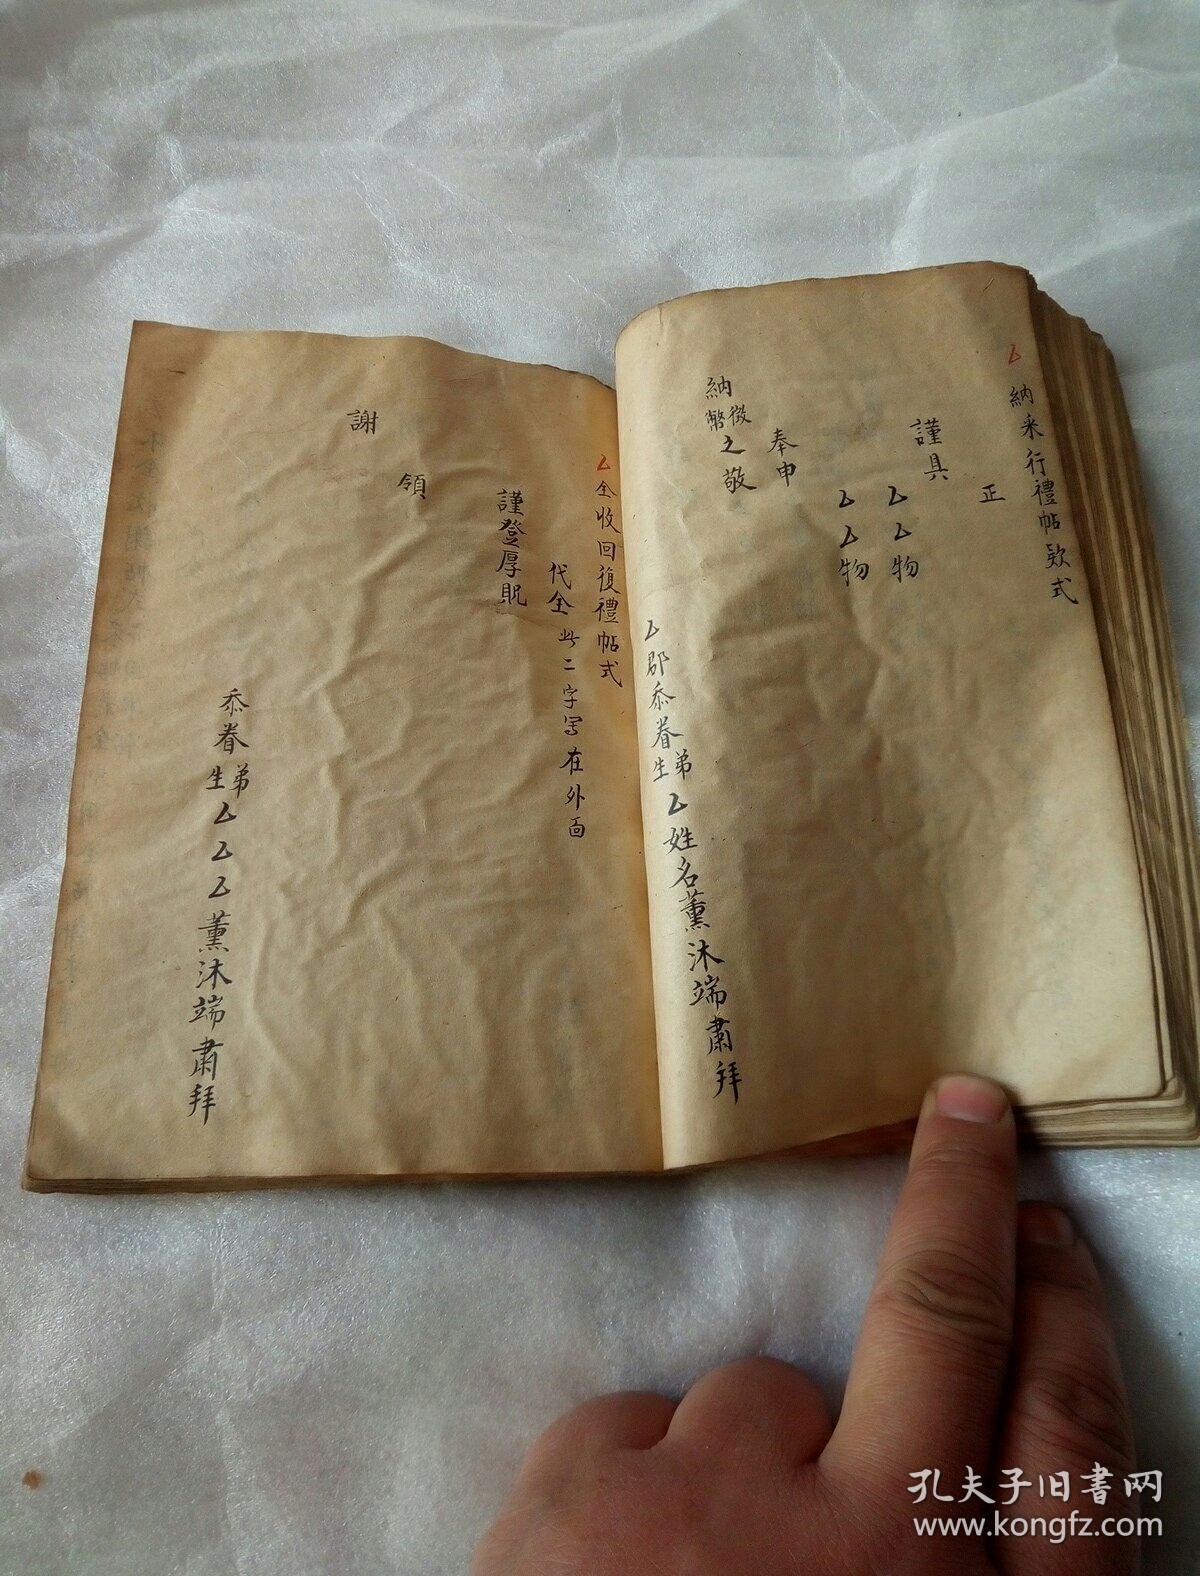 厶納采行禮帖欵式
正
謹具
厶厶物
厶厶物
奉申
納徵幣之敬
厶郡忝眷弟生厶姓名薰沐端肅拜
厶全收回復禮帖式
代全 此二字写在外面
謹登厚貺
領
謝
忝眷弟生厶厶厶薰沐端肅拜
孔夫子旧书网
www.kongfz.com